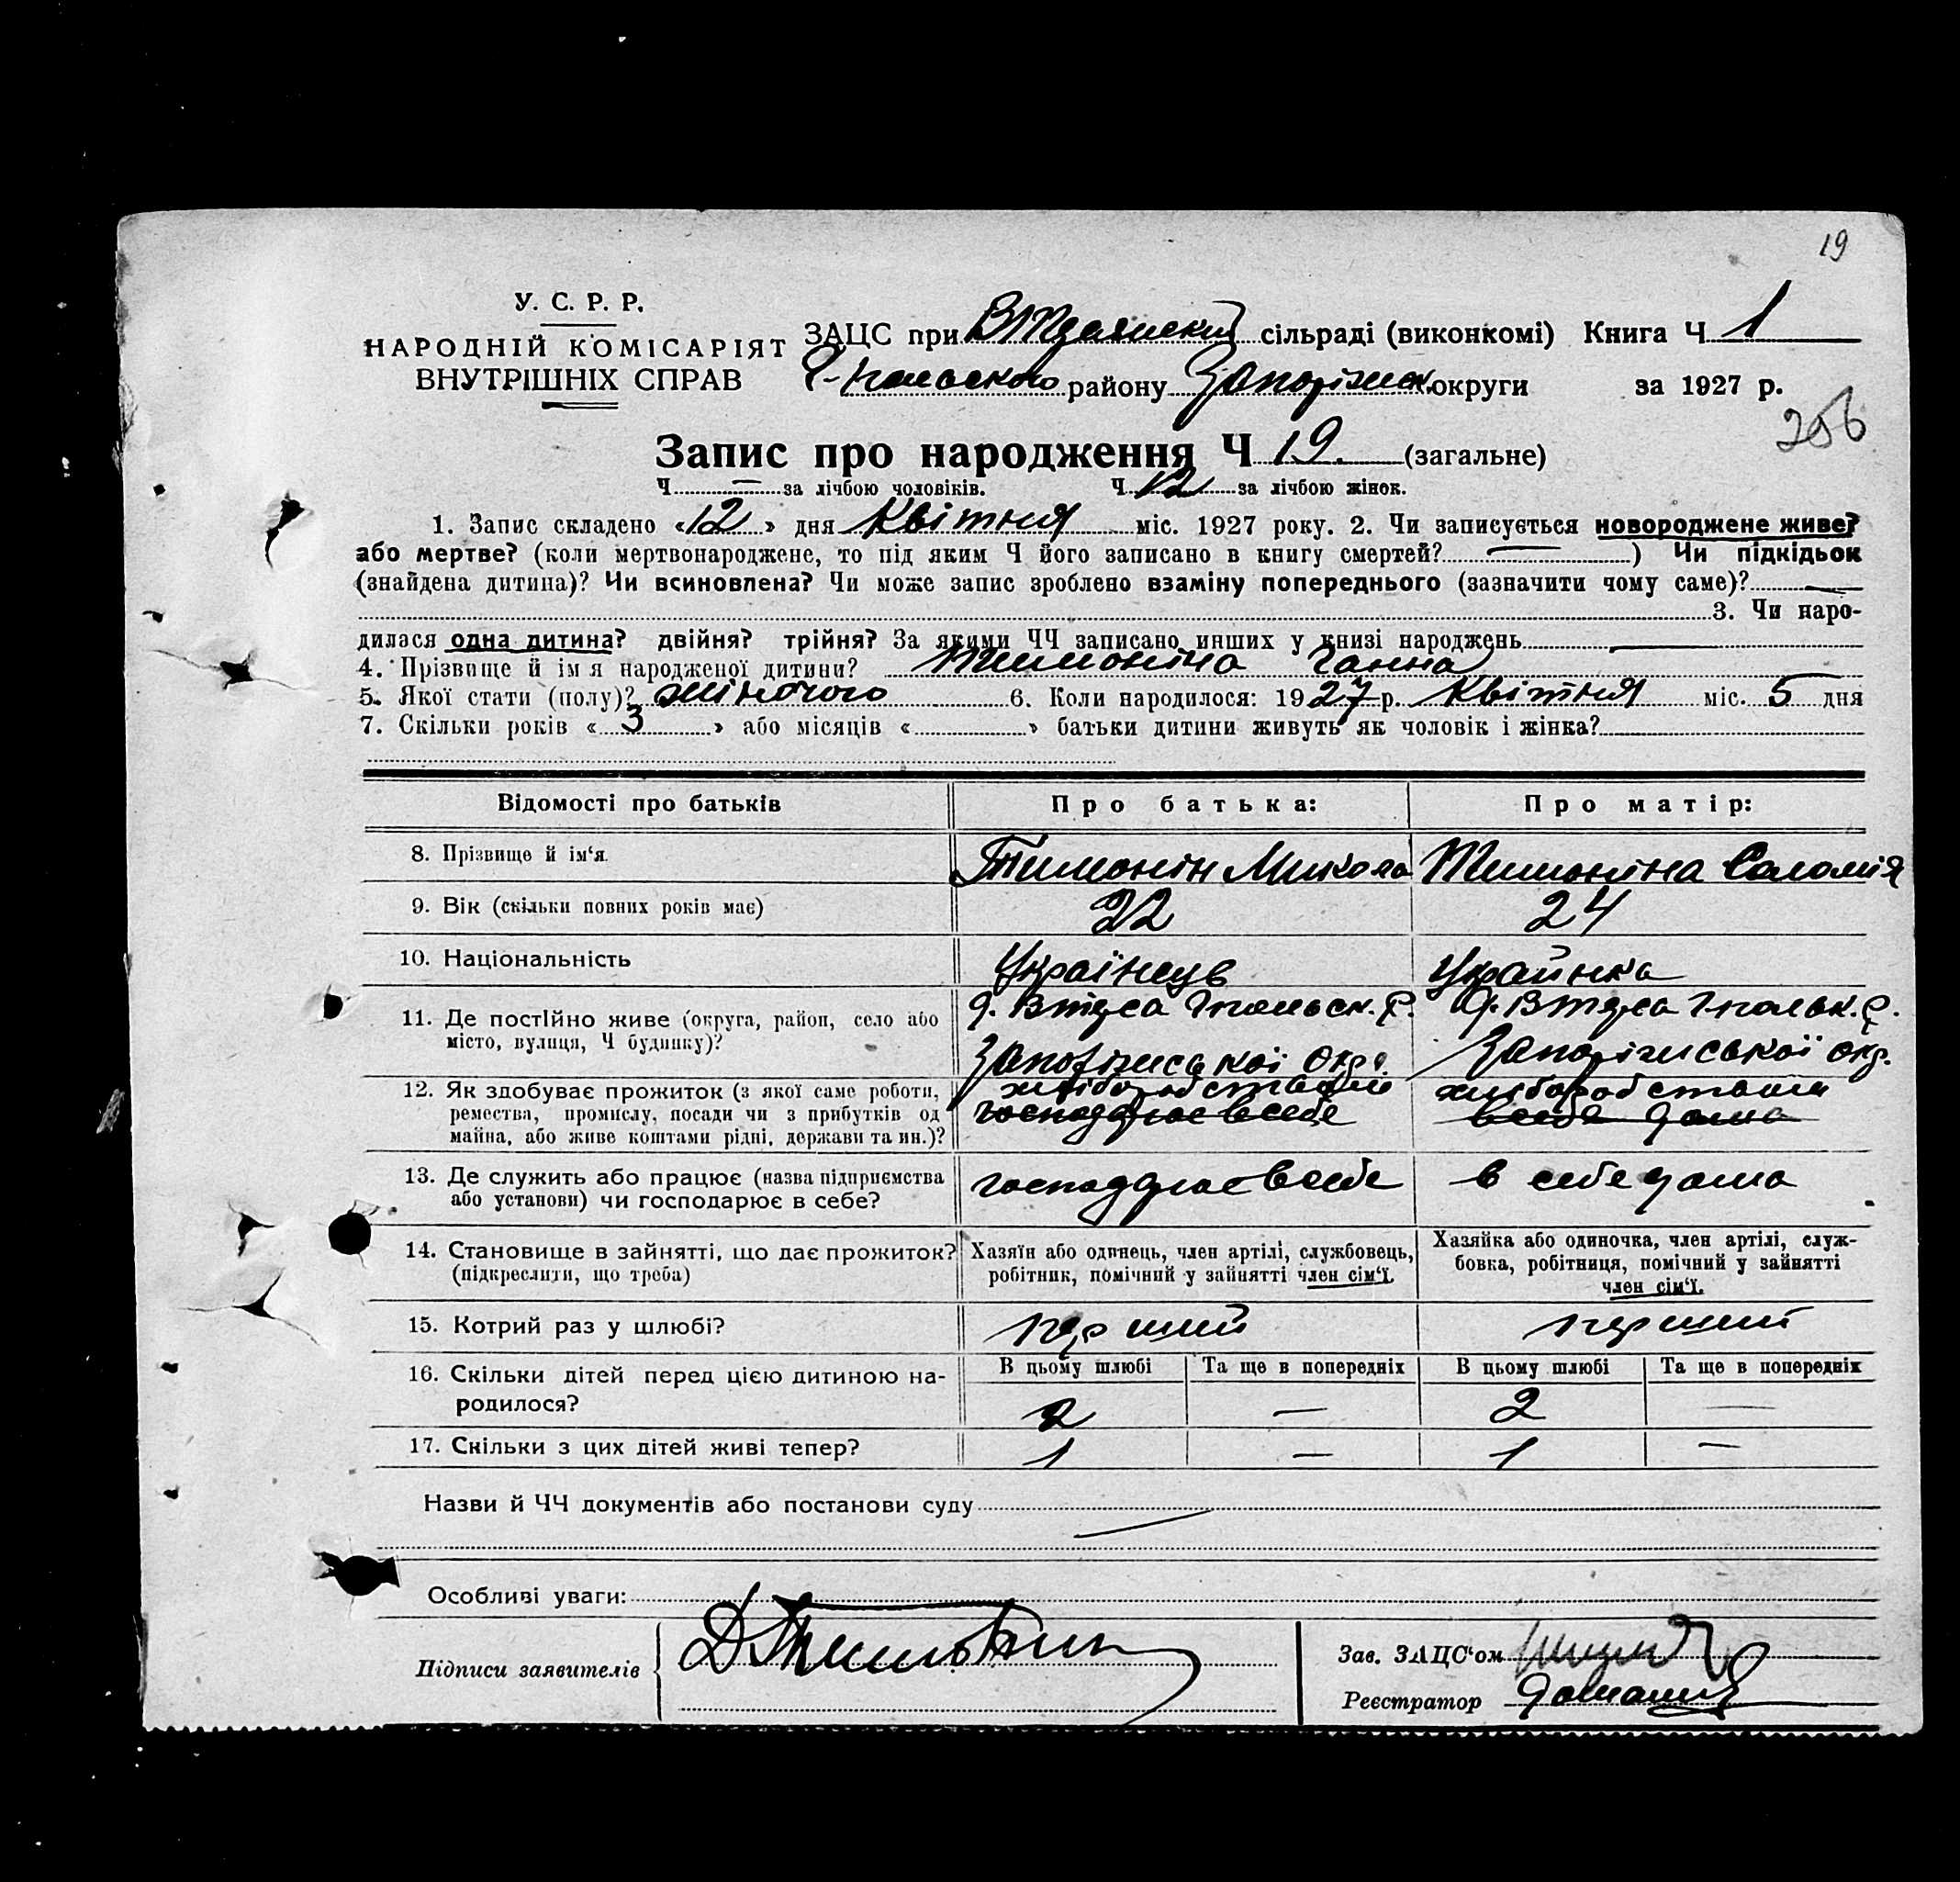 19
У. С. Р. Р.
НАРОДНІЙ КОМІСАРІЯТ
ВНУТРІШНІХ СПРАВ
ЗАЦС при сільраді (виконкомі) Книга Ч 1
Г-польського району Запоріжськ. округи за 1927 р.
256
Запис про народження Ч 19. (загальне)
Ч — за лічбою чоловіків. Ч 12 за лічбою жінок.
1. Запис складено «12» дня Квітня міс. 1927 року. 2. Чи записується новороджене живе?
або мертве? (коли мертвонароджене, то під яким Ч його записано в книгу смертей? —) Чи підкідьок
(знайдена дитина)? Чи всиновлена? Чи може запис зроблено взаміну попереднього (зазначити чому саме)? —
3. Чи наро-
дилася одна дитина? двійня? трійня? За якими ЧЧ записано инших у книзі народжень —
4. Прізвище й імя народженої дитини? Тимоніна Ганна
5. Якої стати (полу)? жіночого 6. Коли народилося: 1927 р. Квітня міс. 5 дня
7. Скільки років «3» або місяців « » батьки дитини живуть як чоловік і жінка?
Відомості про батьків Про батька: Про матір:
8. Прізвище й ім'я. Тимонін Микола Тимоніна Соломія
9. Вік (скільки повних років має) 22 24
10. Національність Українець Украйнка
11. Де постійно живе (округа, район, село або
місто, вулиця, Ч будинку)?
Запоріжської окр. Запоріжської окр.
12. Як здобуває прожиток (з якої саме роботи,
ремества, промислу, посади чи з прибутків од
майна, або живе коштами рідні, держави та ин.)?
хліборобством хліборобством
13. Де служить або працює (назва підприємства
або установи) чи господарює в себе?
господарює в себе в себе дома
14. Становище в зайнятті, що дає прожиток?
(підкреслити, що треба)
Хазяїн або одинець, член артілі, службовець,
робітник, помічний у зайнятті член сім'ї.
Хазяйка або одиночка, член артілі, служ-
бовка, робітниця, помічний у зайнятті
член сім'ї.
15. Котрий раз у шлюбі? перший перший
16. Скільки дітей перед цією дитиною на-
родилося?
В цьому шлюбі Та ще в попередніх В цьому шлюбі Та ще в попередніх
2 — 2 —
17. Скільки з цих дітей живі тепер? 1 — 1 —
Назви й ЧЧ документів або постанови суду
Особливі уваги:
Підписи заявителів
Зав. ЗАЦС'ом
Реєстратор